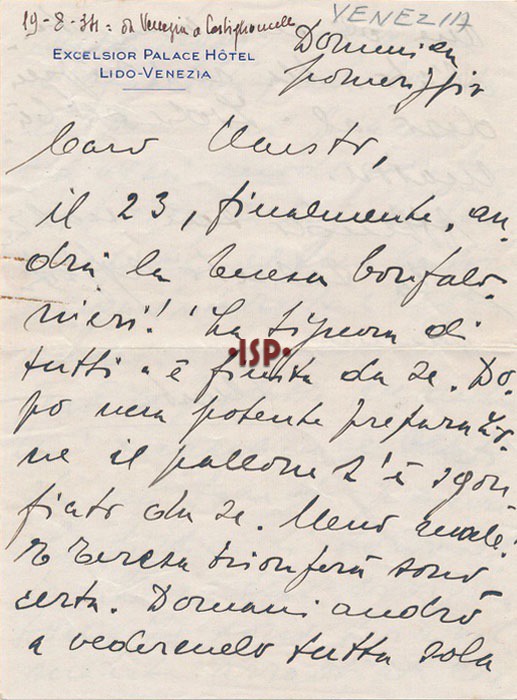 19-8-34 = da Venezia a Castiglioncello
VENEZIA
EXCELSIOR PALACE HÔTEL
LIDO-VENEZIA
Domenica
pomeriggio
Caro Maestro,
il 23, finalmente, an-
drà la Teresa Confalo-
nieri! "La Signora di
tutti" è finita da se. Do-
po una potente preparazio-
ne il pallone s'è sgon
fiato da se. Meno male!
E Teresa trionferà sono
certa. Domani andrò
a vedermelo tutta sola
•ISP•